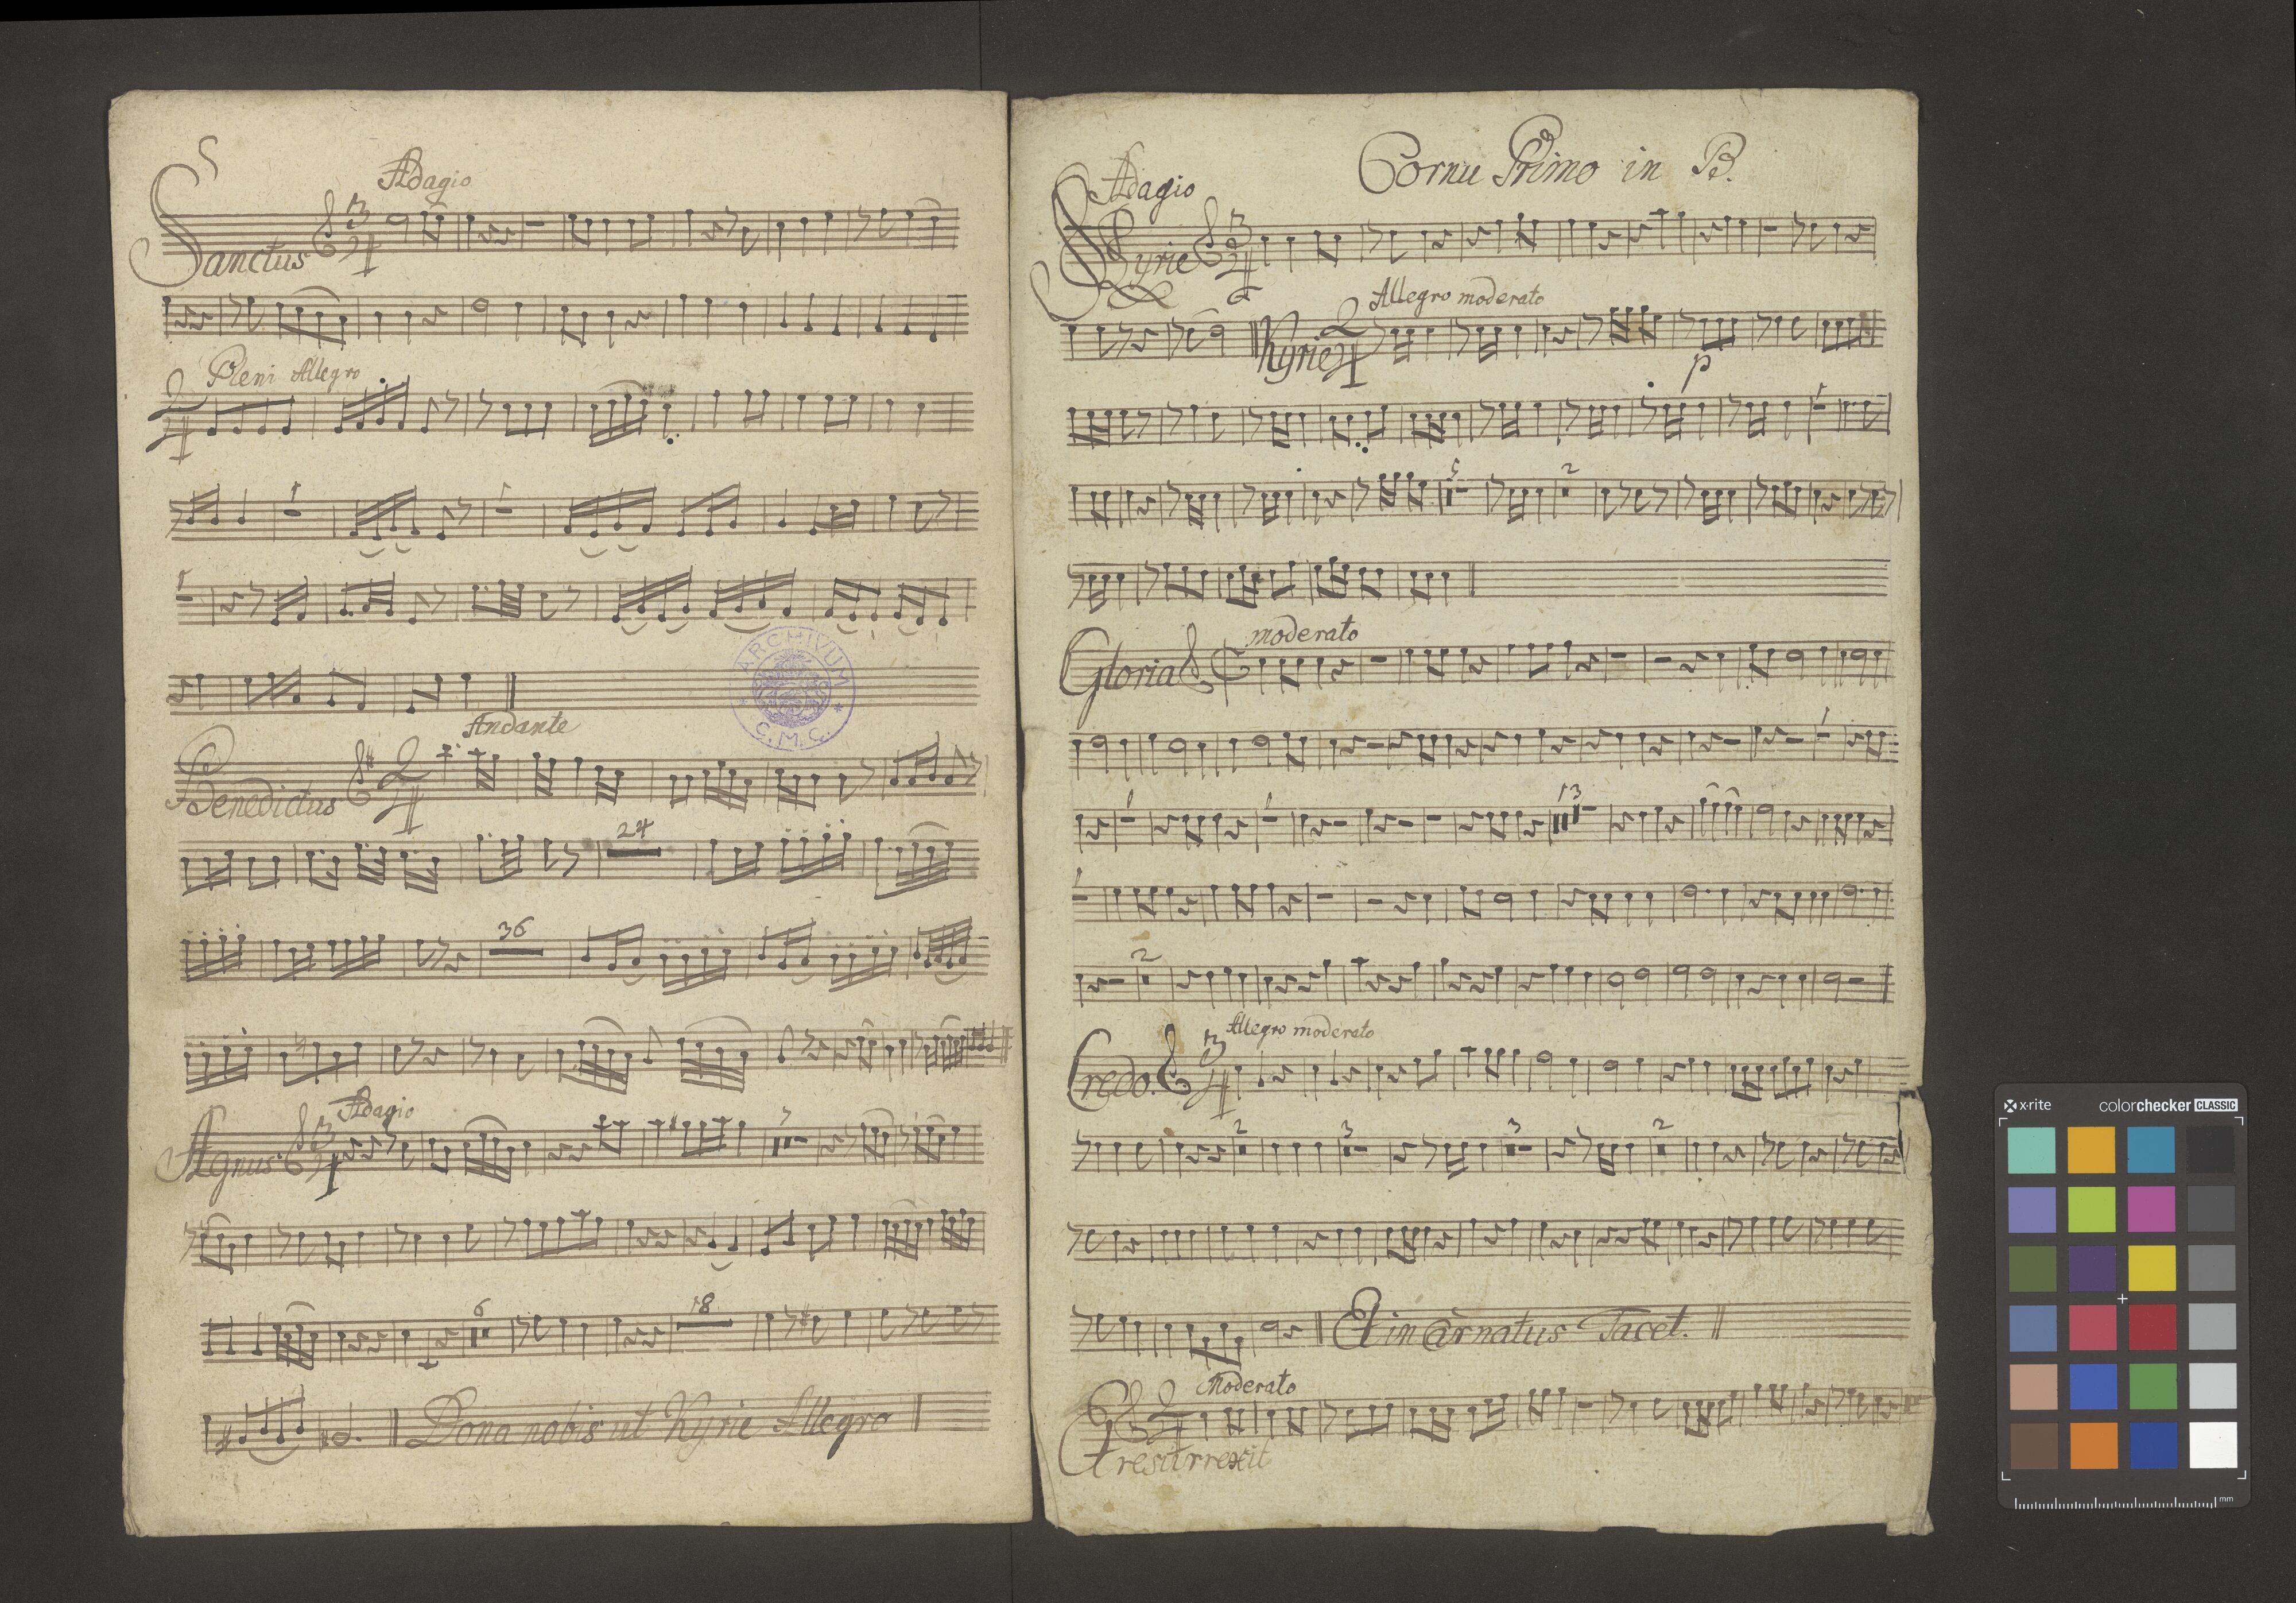 Adagio
Sanctus 3/4
Pleni Allegro
2/4
Andante
Benedictus 2/4
24
36
Adagio
Agnus 3/4
7
6
18
Dona nobis ut Kyrie Allegro
ARCHIVUM
C.M.C.
Cornu Primo in B.
Adagio
Kyrie 3/4
Allegro moderato
Kyrie 2/4
p
1
5
2
moderato
Gloria
1
1
1
13
1
2
Allegro moderato
Credo. 3/4
2
3
3
2
Et in Carnatus Tacet.
Moderato
2/4
Et resurrexit
x·rite
colorchecker CLASSIC
mm